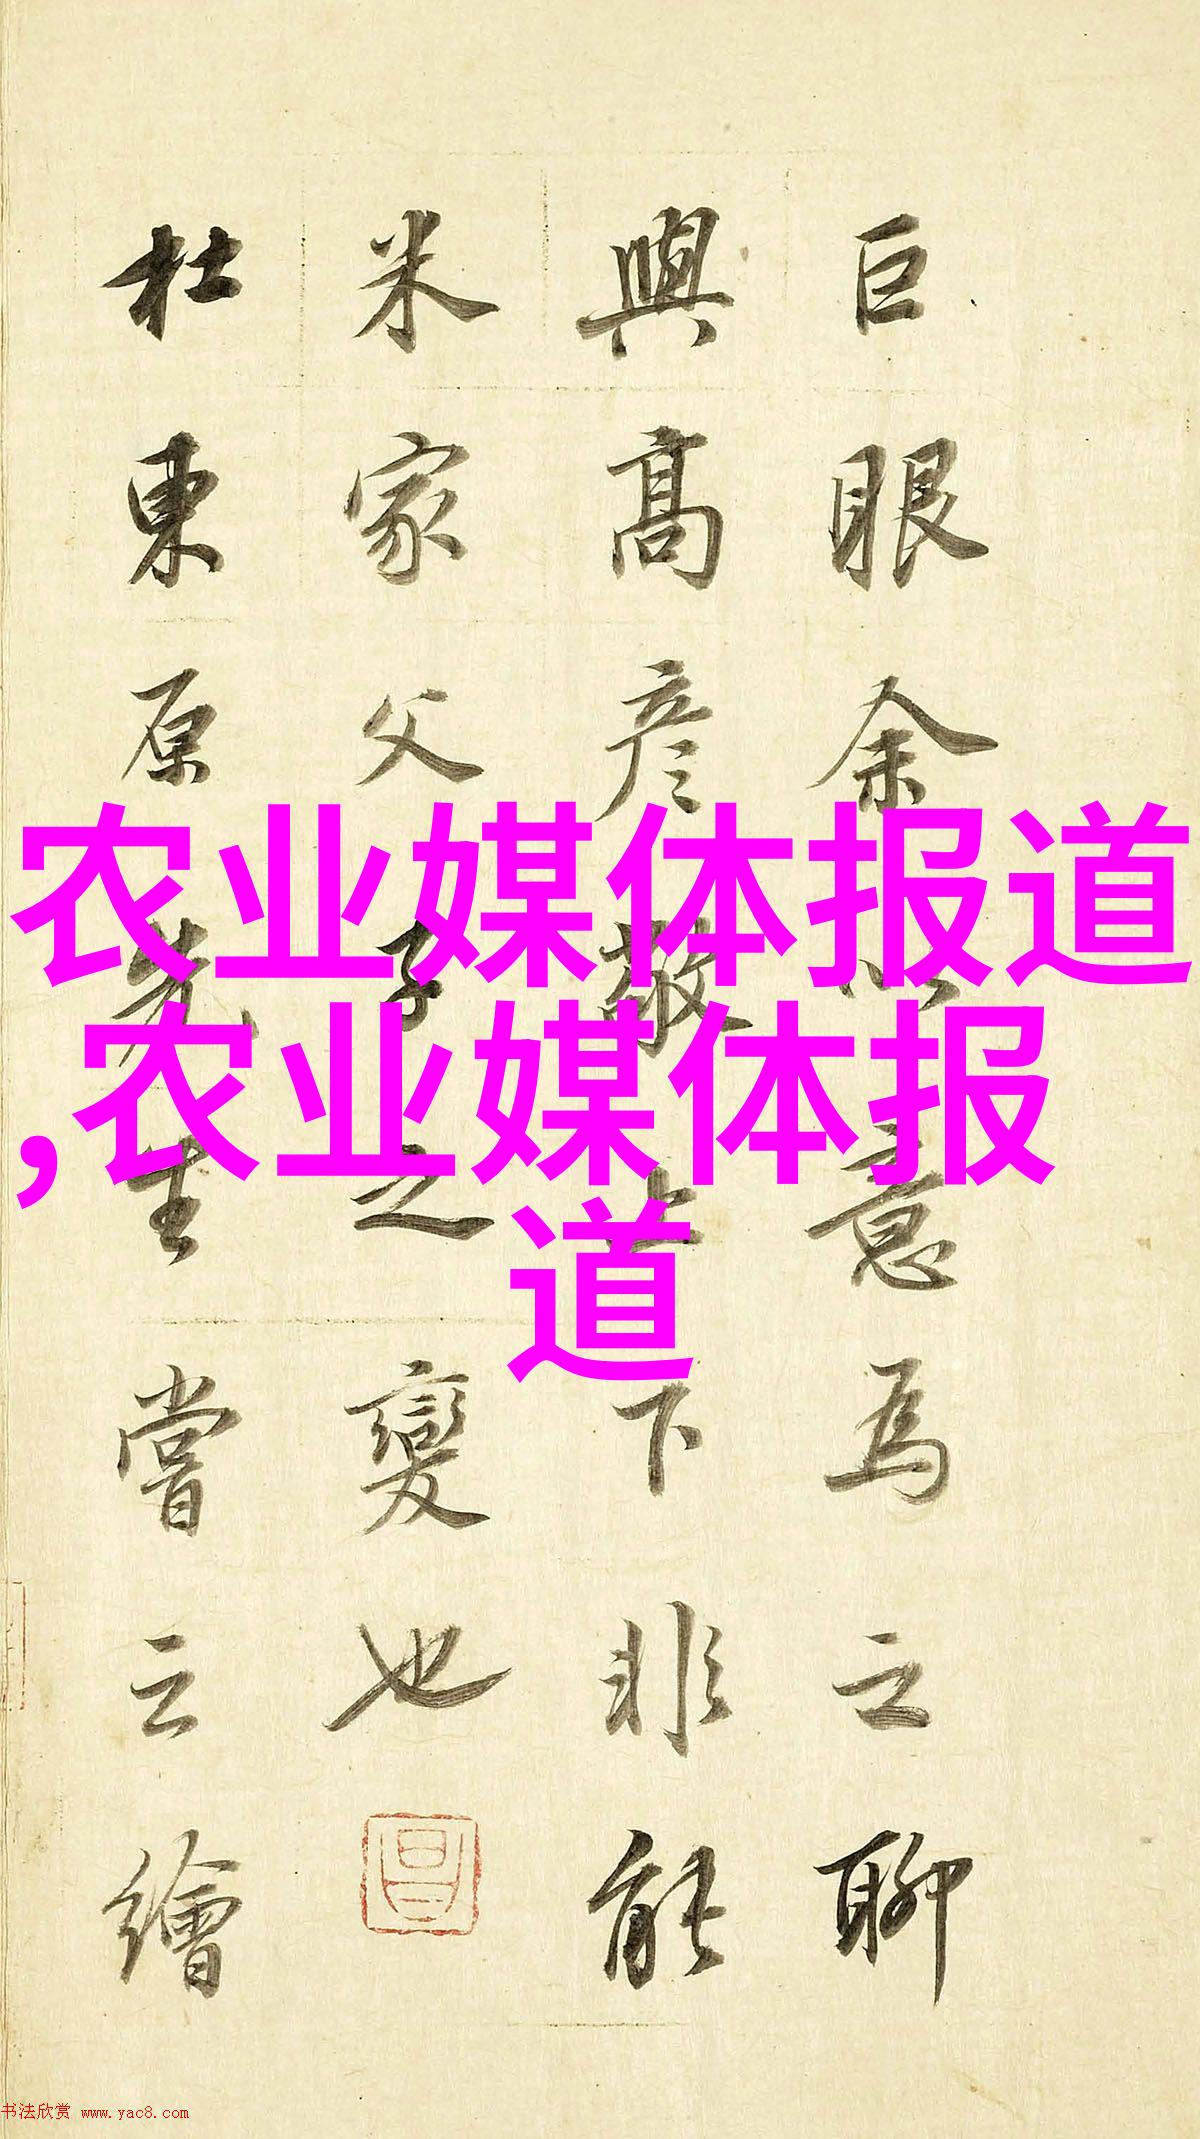 巨眼余意為之聊
與高彦敬上下非能
米家父子之變也
杜東原先生嘗云繪
农业媒体报道
,农业媒体报
道
书法欣赏 www.yac8.com